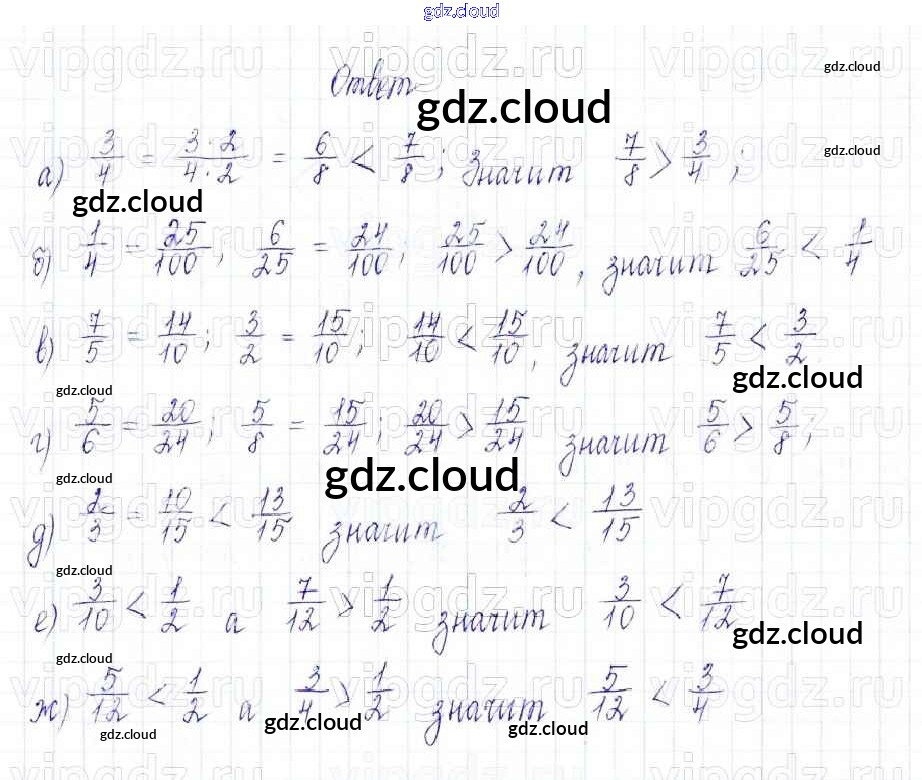 gdz.cloud
Ответ
gdz.cloud
gdz.cloud
а) 3/4 = 3·2/4·2 = 6/8 < 7/8; Значит 7/8 > 3/4;
gdz.cloud
gdz.cloud
б) 1/4 = 25/100; 6/25 = 24/100; 25/100 > 24/100, значит 6/25 < 1/4
в) 7/5 = 14/10; 3/2 = 15/10; 14/10 < 15/10, значит 7/5 < 3/2
gdz.cloud
gdz.cloud
г) 5/6 = 20/24; 5/8 = 15/24; 20/24 > 15/24 значит 5/6 > 5/8;
gdz.cloud
gdz.cloud
д) 2/3 = 10/15 < 13/15 значит 2/3 < 13/15
gdz.cloud
е) 3/10 < 1/2 а 7/12 > 1/2 значит 3/10 < 7/12
gdz.cloud
gdz.cloud
ж) 5/12 < 1/2 а 3/4 > 1/2 значит 5/12 < 3/4
gdz.cloud
gdz.cloud
gdz.cloud
vipgdz.ru